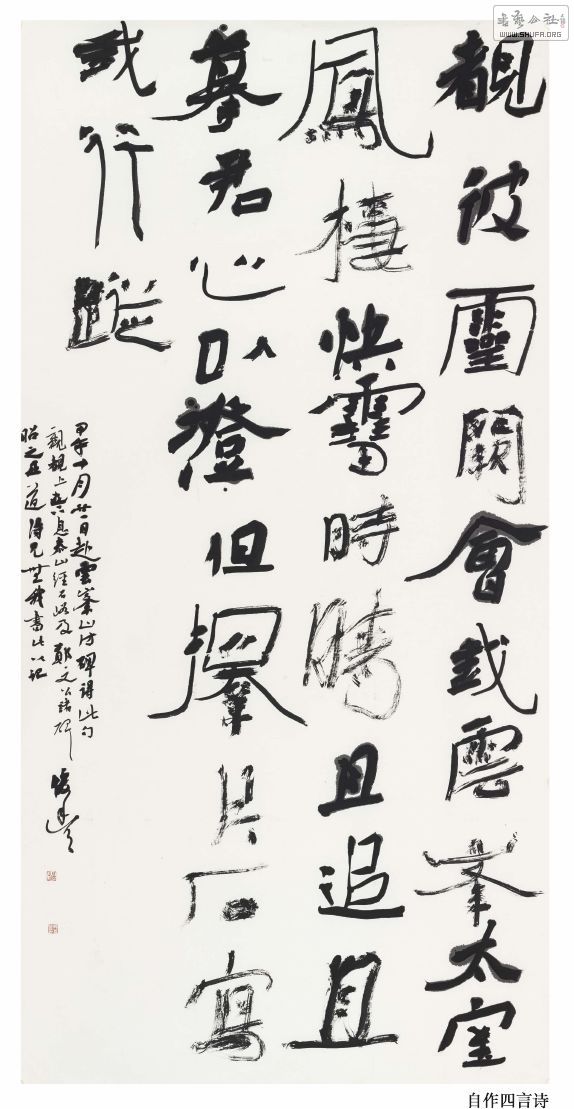 书艺公社
WWW.SHUFA.ORG
覩彼靈闕會我雲峯太室
鳳棲快雪時晴且追且
摹君心以澄但片石寫
我行蹤
甲午十月廿一日赴雲峯山訪碑得此句
親覩上息泰山經石峪及鄭文公諸碑
昭之道兄書此以記
自作四言诗